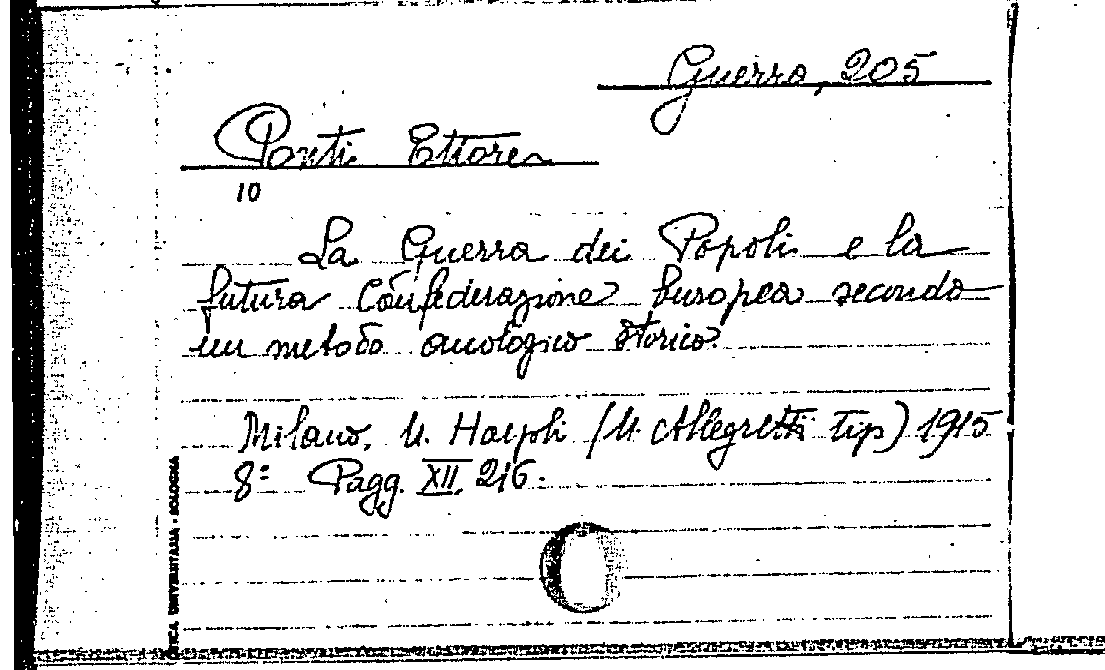 Guerra, 205
Ponti Ettore
10
La Guerra dei Popoli e la
futura Confederazione Europea secondo
un metodo analogico storico.
Milano, U. Hoepli (U. Allegretti tip) 1915
8º Pagg. XII, 216.
UNIVERSITARIA - BOLOGNA